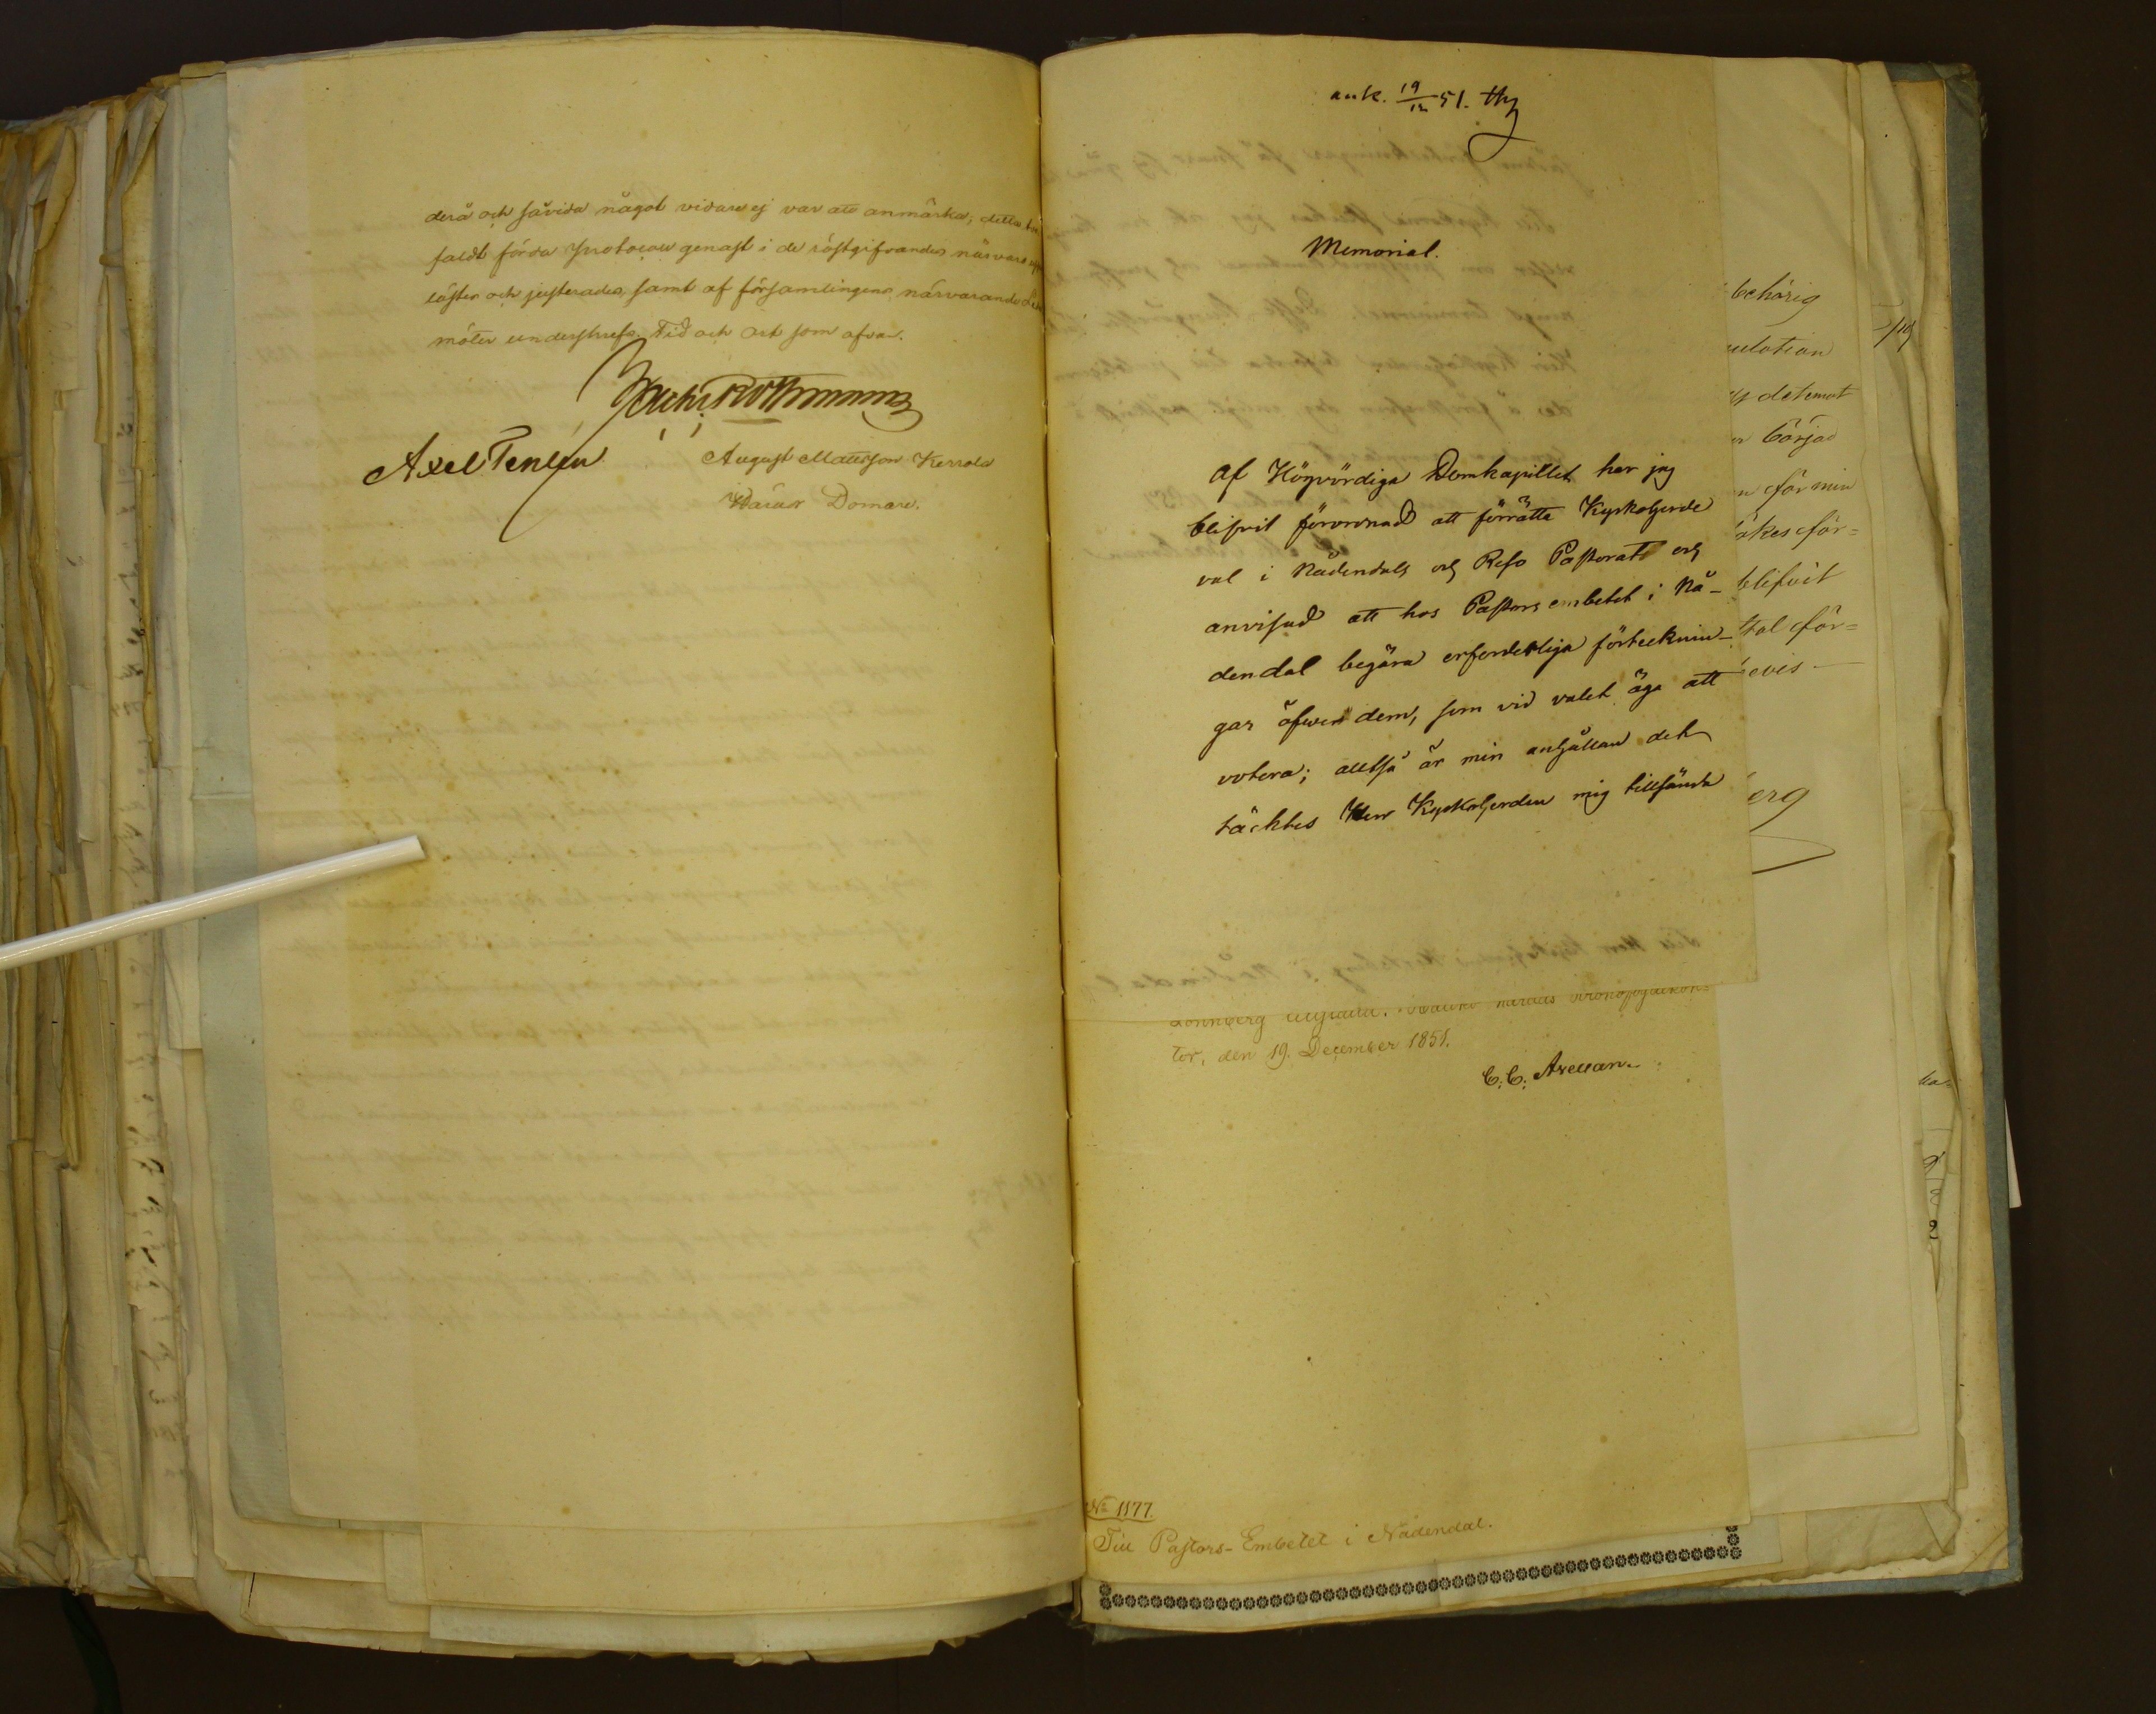 derå och såvida något vidare ej var att anmärka, detta
faldt förda Protocoll genast i de röstgifvandes närvaro
lästes och justerades, samt af församlingens närvarande
möter underskrefs. Tid och Ort som ofvan.
Axel Tenlén
August Mattsson Kerrola
Härads Domare.
ank. 19/12 51.
Memorial.
Af Högvördiga Domkapitlet har jag
blifvit förordnad att förrätta Kyrkoherde
val i Nådendals och Reso Pastorat och
anvisad att hos Pastors embetet i Nå-
dendal begära erforderliga förtecknin-
gar öfwer dem, som vid valet äga att
votera; alltså är min anhållan det
täcktes Herr Kyrkoherden mig tillsända
Lönnberg
tor, den 19. December 1851.
C. C. Arellan.
No 1177.
Till Pastors-Embetet i Nådendal.
behörig
detemot
börjad
för min
för=
blifvit
tal för=
evis
erg